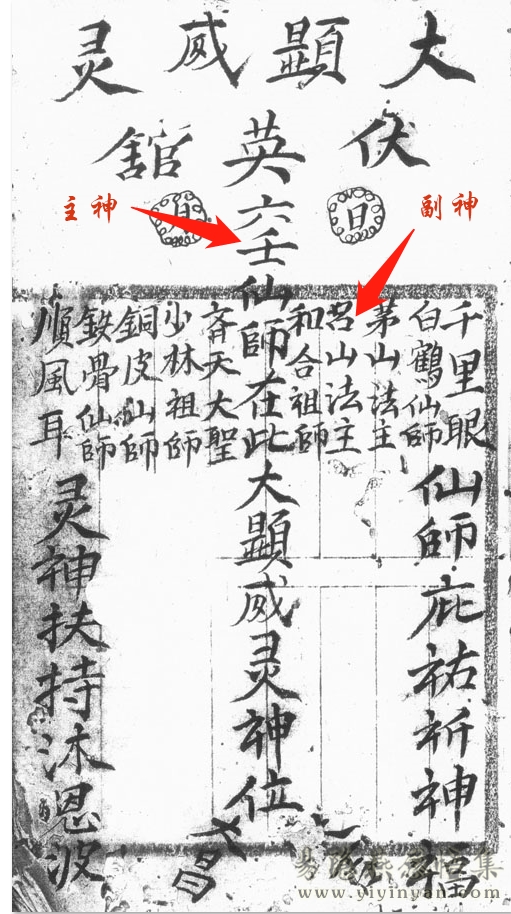 大顯威灵
伏英舘
日
主神
副神
千里眼
白鶴仙師
茅山法主
山法主
和合祖師
六壬仙師在此大顯威灵神位
齐天大聖
少林祖師
銅皮仙師
鉄骨仙師
順風耳
仙師庇祐祈神
灵神扶持沐恩波
大昌
www.yiyinyan.com